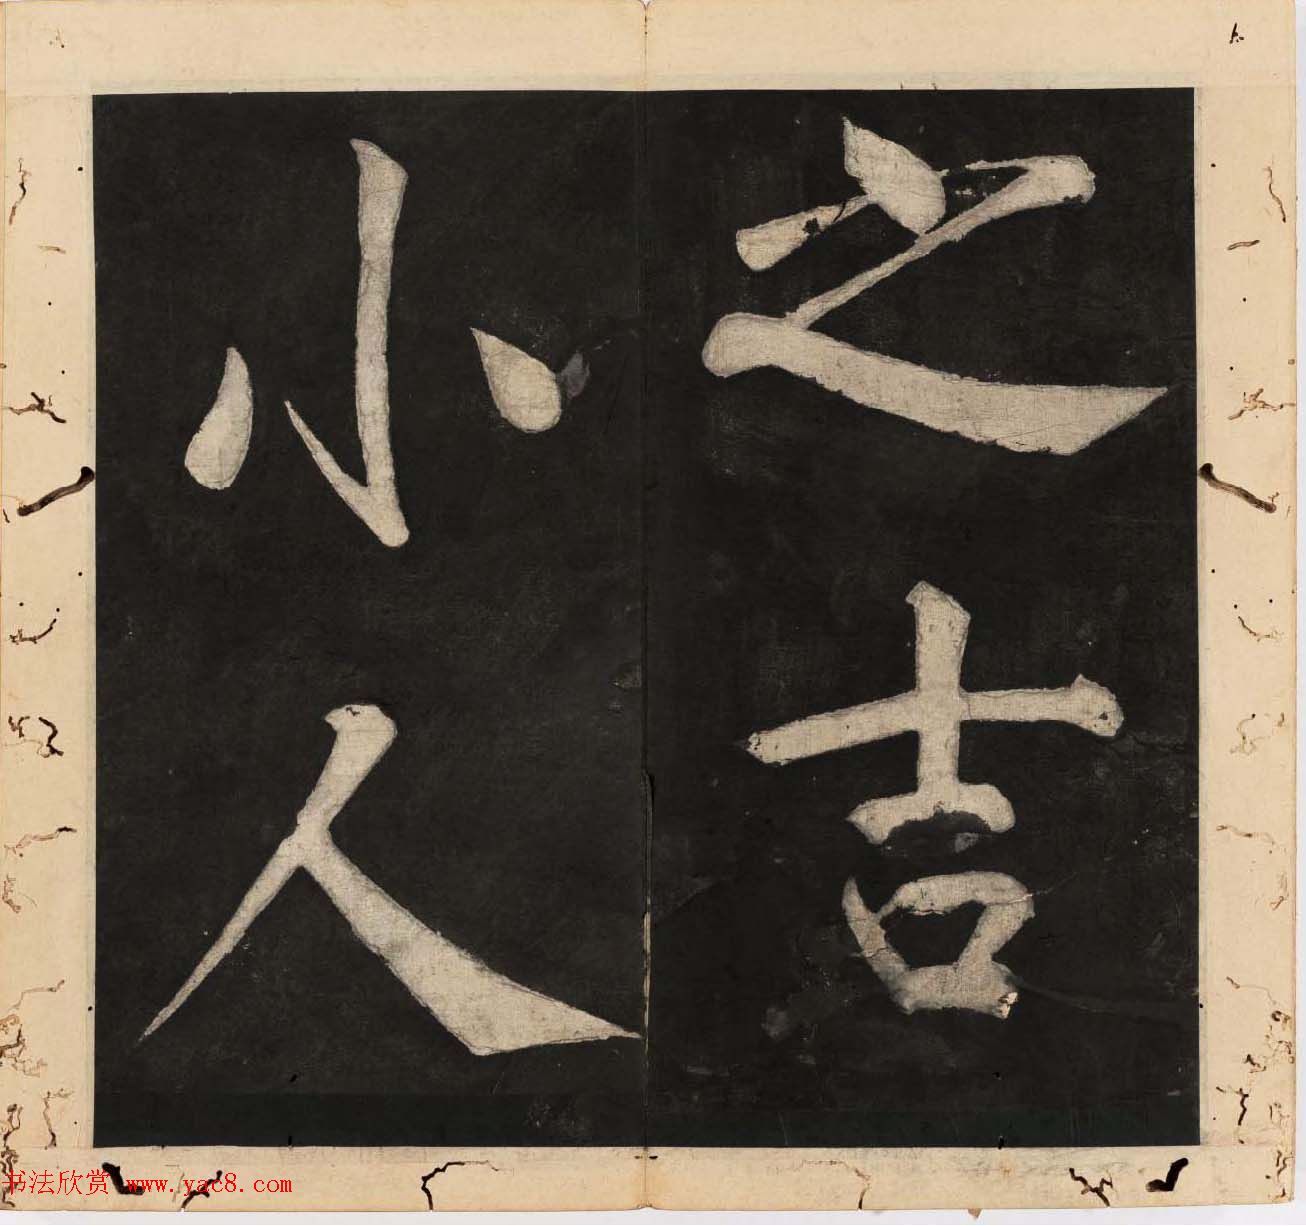 之吉
小人
书法欣赏 www.yac8.com